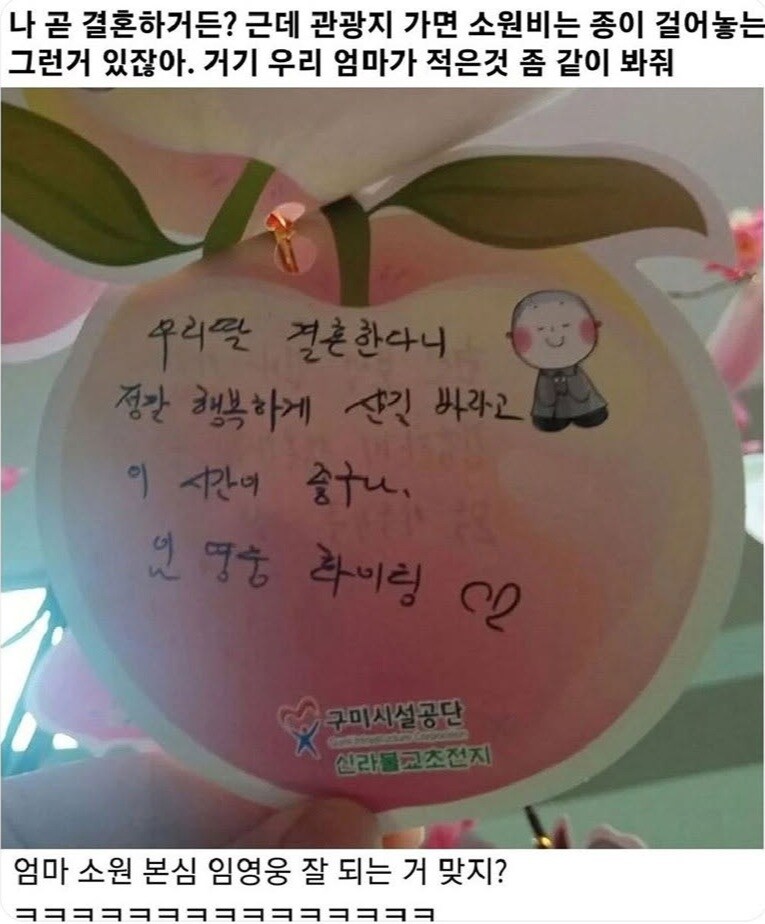 나 곧 결혼하거든? 근데 관광지 가면 소원비는 종이 걸어놓는
그런거 있잖아. 거기 우리 엄마가 적은것 좀 같이 봐줘
우리딸 결혼한다니
정말 행복하게 산길 바라고
이 시간이 좋구나,
임영웅 화이팅 ♡
구미시설공단
신라불교초전지
엄마 소원 본심 임영웅 잘 되는 거 맞지?
ㅋㅋㅋㅋㅋㅋㅋㅋㅋㅋㅋㅋㅋㅋㅋ